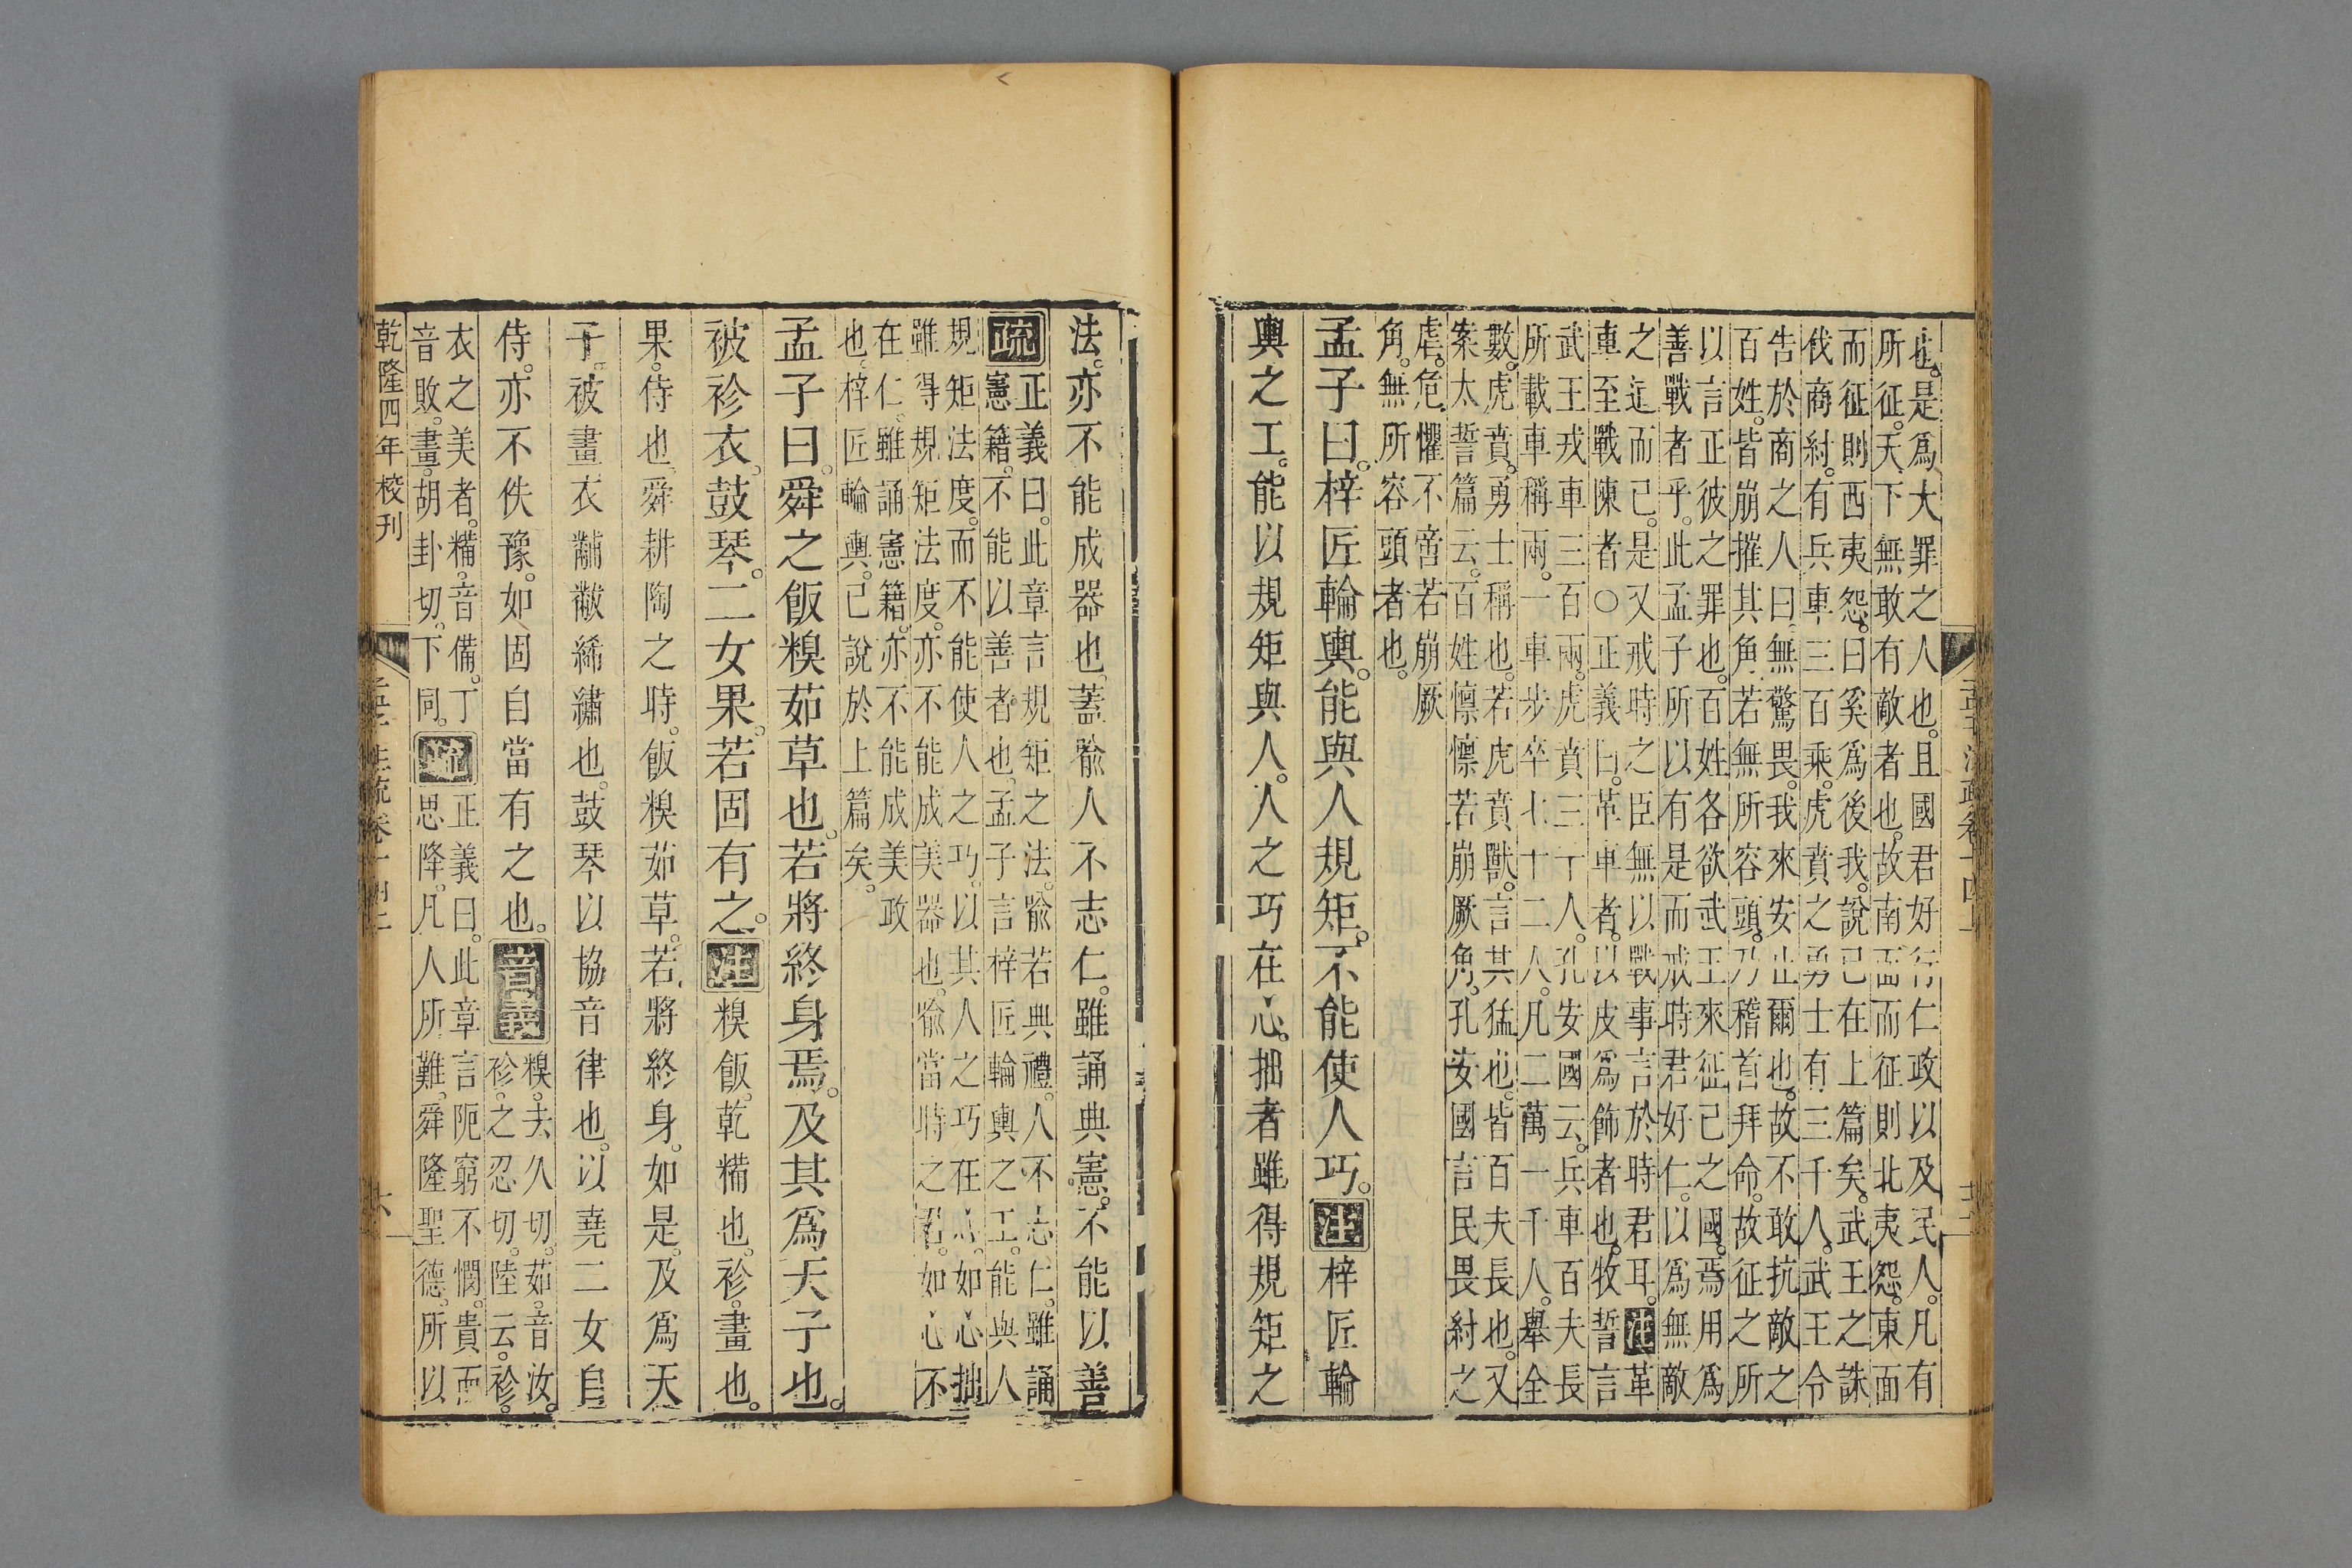 也。是爲大罪之人也。且國君好行仁政以及民人。凡有
所征。天下無敢有敵者也。故南面而征則北夷怨。東面
而征則西夷怨。曰奚爲後我。說已在上篇矣。武王之誅
伐商紂。有兵車三百乘。虎賁之勇士有三千人。武王令
告於商之人曰。無驚畏。我來安止爾也。故不敢抗敵之
百姓。皆崩摧其角。若無所容頭。乃稽首拜命。故征之所
以言正彼之罪也。百姓各欲武王來征己之國。焉用爲
善戰者乎。此孟子所以有是而戒時君好仁。以爲無敵
之道而已。是又戒時之臣無以戰事言於時君耳。注革
車至戰陳者○正義曰。革車者。以皮爲飾者也。牧誓言
武王戎車三百兩。虎賁三千人。孔安國云。兵車百夫長
所載車稱兩。一車步卒七十二人。凡二萬一千人。舉全
數。虎賁。勇士稱也。若虎賁獸。言其猛也。皆百夫長也。又
案太誓篇云。百姓懔懔若崩厥角。孔安國言民畏紂之
虐。危懼不啻若崩厥
角。無所容頭者也。
孟子曰。梓匠輪輿。能與人規矩。不能使人巧。注梓匠輪
輿之工。能以規矩與人。人之巧在心。拙者雖得規矩之
法。亦不能成器也。蓋喩人不志仁。雖誦典憲。不能以善
疏正義曰。此章言規矩之法。喩若典禮。人不志仁。雖誦
憲籍。不能以善者也。孟子言梓匠輪輿之工。能與人
規矩法度。而不能使人之巧。以其人之巧在心。如心拙
雖得規矩法度。亦不能成美器也。喩當時之君。如心不
在仁。雖誦憲籍。亦不能成美政
也。梓匠輪輿。已說於上篇矣。
孟子曰。舜之飯糗茹草也。若將終身焉。及其爲天子也。
被袗衣。鼓琴。二女果。若固有之。注糗飯。乾糒也。袗。畫也。
果。侍也。舜耕陶之時。飯糗茹草。若將終身。如是。及爲天
子。被畫衣黼黻絺繡也。鼓琴以協音律也。以堯二女自
侍。亦不佚豫。如固自當有之也。音義糗。去久切。茹。音汝。
袗。之忍切。陸云。袗。
衣之美者。糒。音備。丁
音敗。畫。胡卦切。下同。疏正義曰。此章言阨窮不憫。貴而
思降。凡人所難。舜隆聖德。所以
乾隆四年校刊